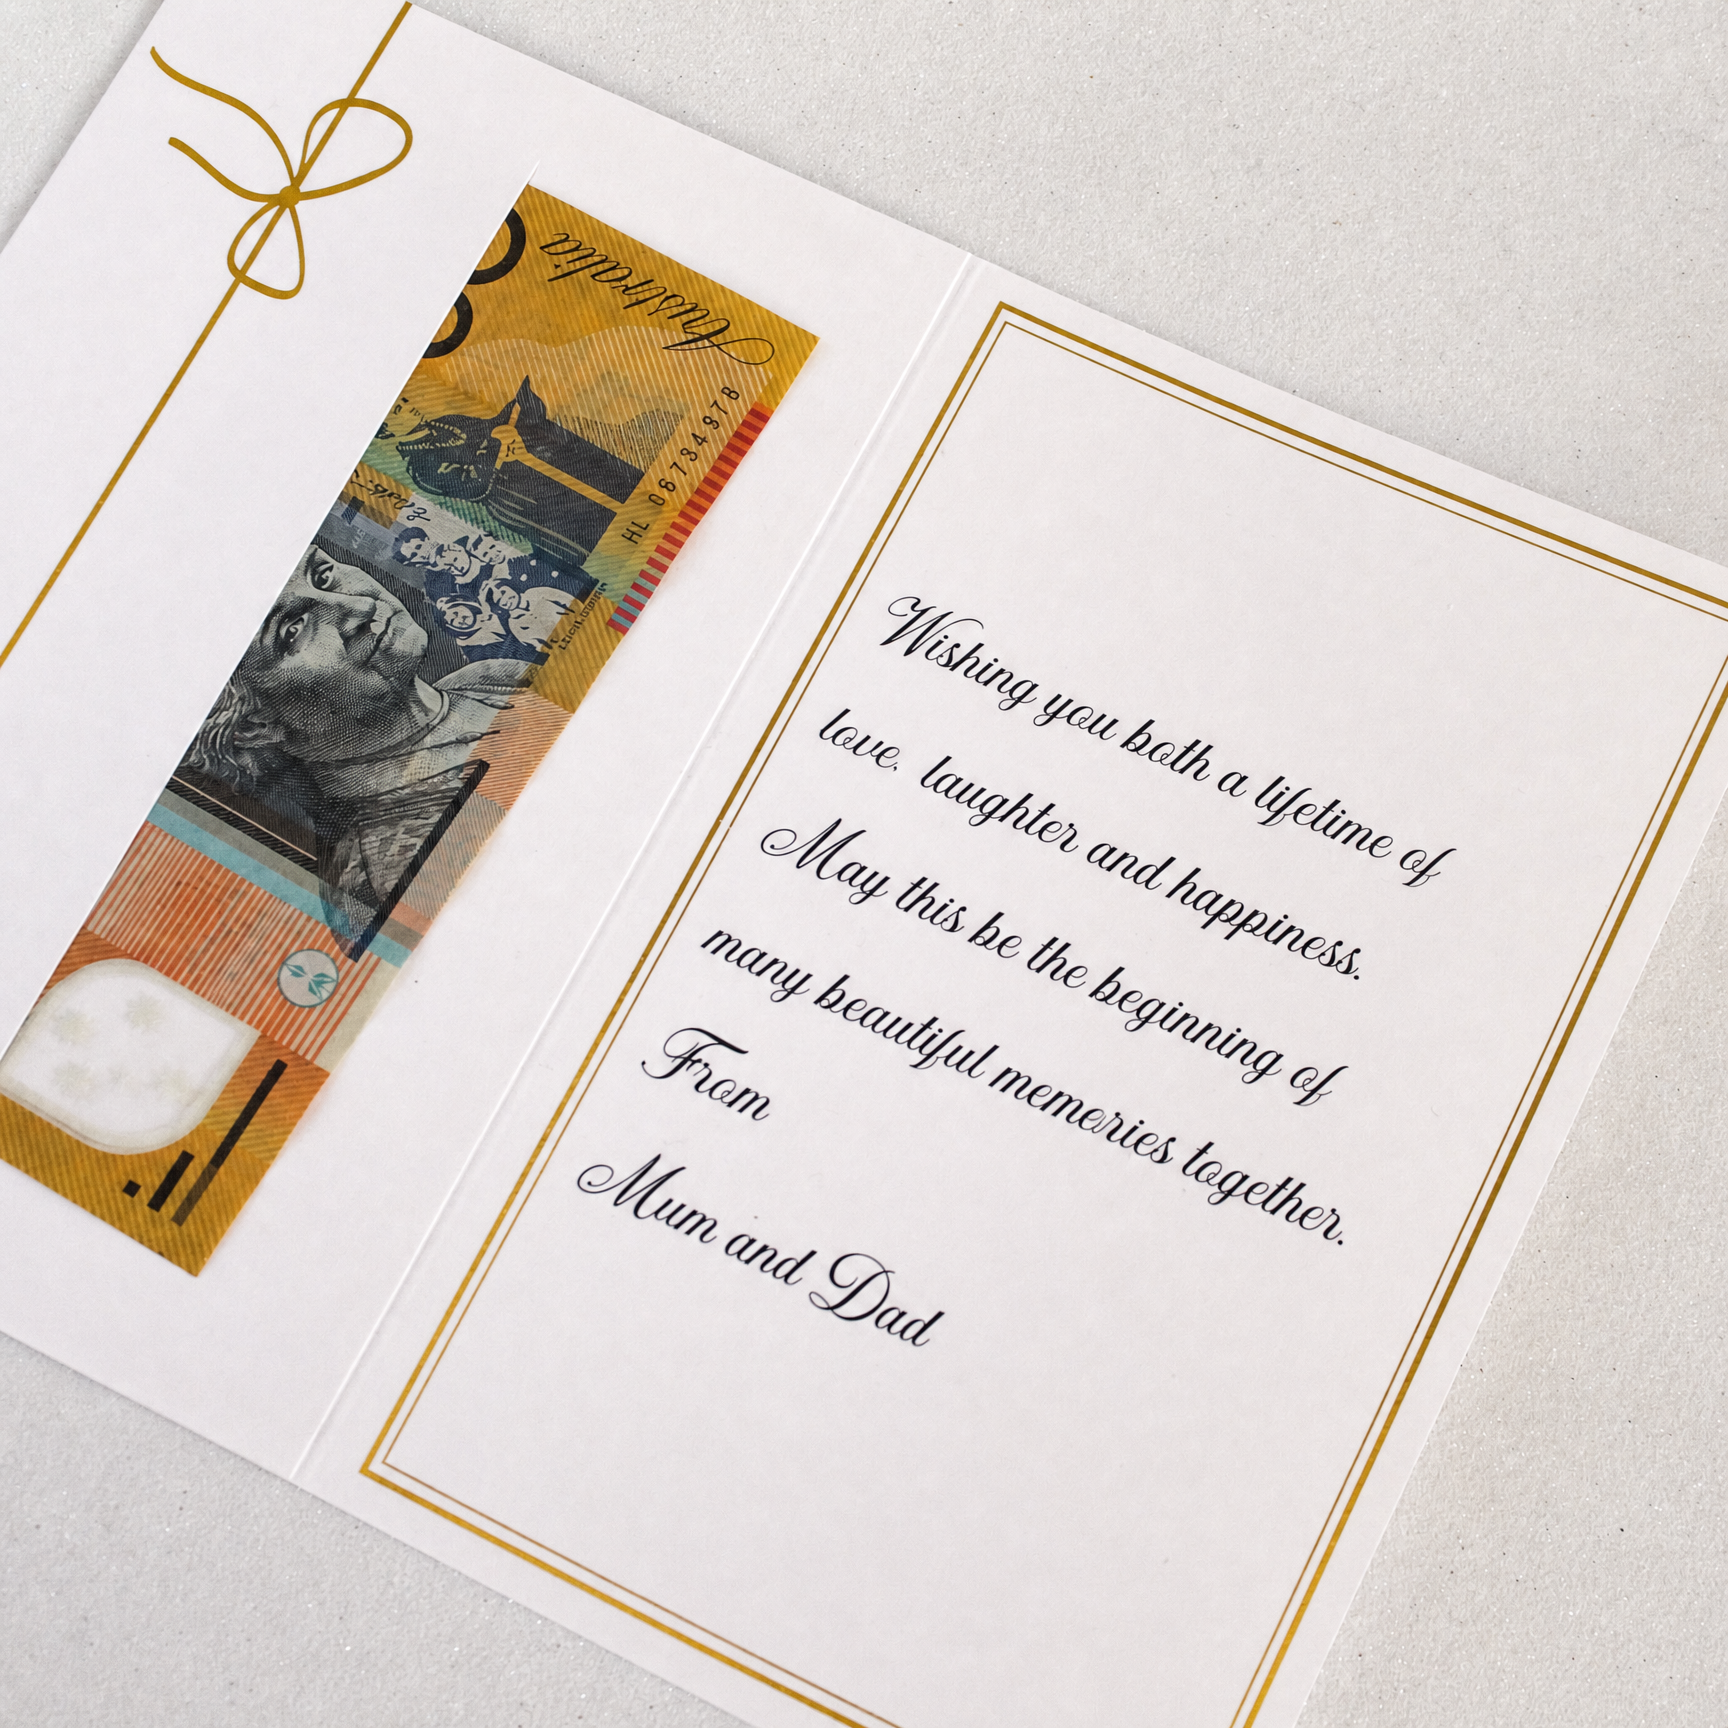 Australia
HL 06734978
Wishing you both a lifetime of
love, laughter and happiness.
May this be the beginning of
many beautiful memories together.
From
Mum and Dad